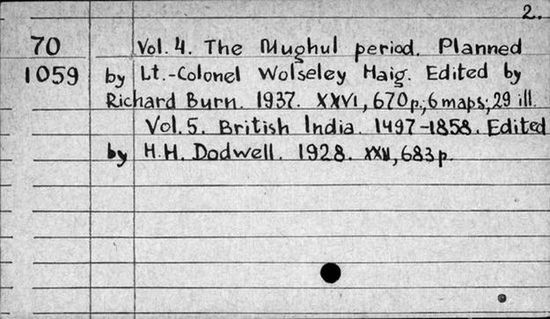 2.
70 Vol. 4. The Mughul period. Planned
1059 by Lt.-Colonel Wolseley Haig. Edited by
Richard Burn. 1937. XXVI, 670p.; 6 maps; 29 ill.
Vol. 5. British India. 1497-1858. Edited
by H.H. Dodwell. 1928. XXII, 683p.